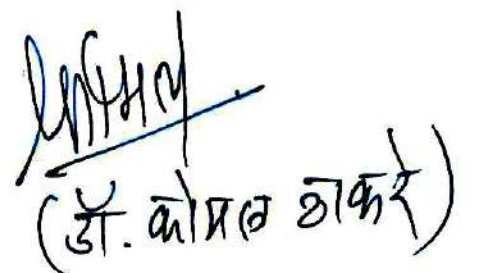 (डॉ. कोमल ठाकरे)